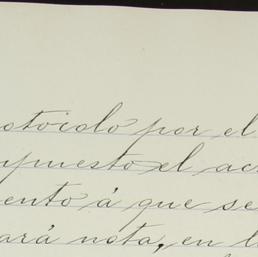 otocolo por el
mpuesto el ac
ento á que se
ará nota, en l